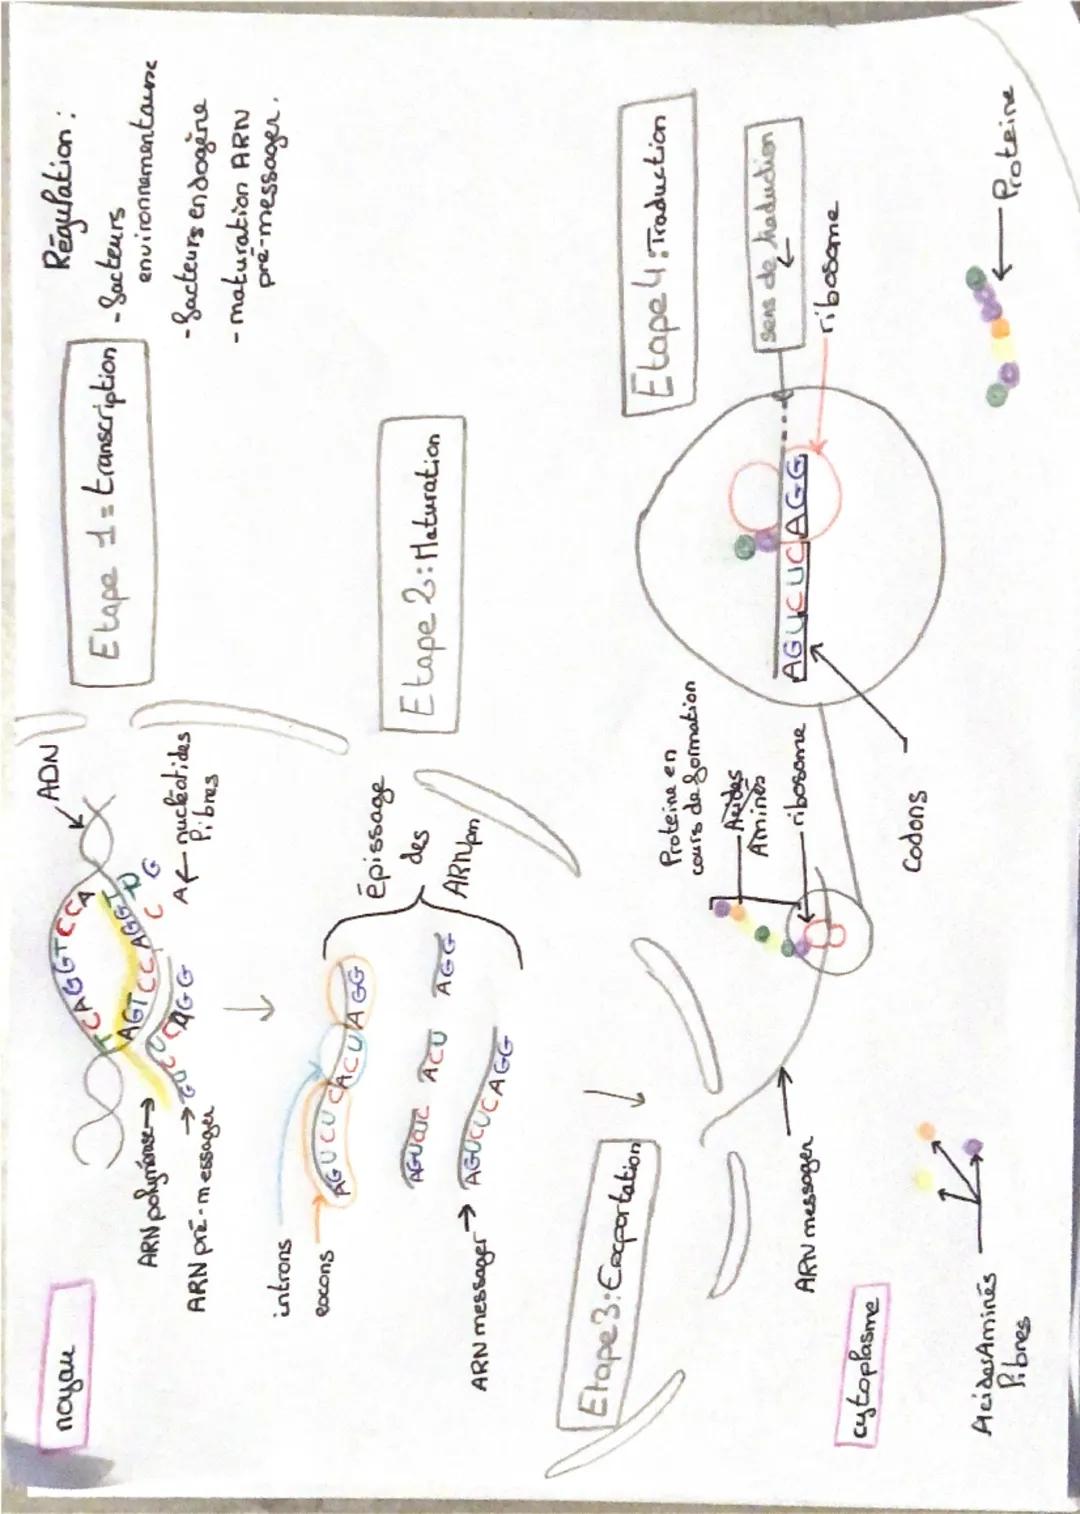 noyau
ADN
TCAGGTCCA
AGTCCAGGT
Etape 1 = transcription
Régulation :
- facteurs
environnementaire
- facteurs endogène
- maturation ARN
pré-messager.
ARN polymérase
ARN pré-messager
nucléotides
libres
A
C
G
Etape 2 : Maturation
introns
exons
AGUCUCACUAGG
épissage
des
ARNpm
AGUCUC ACU AGG
ARN messager
AGUCUCAGG
Etape 3 : Exportation
Etape 4 : Traduction
sens de traduction
ribosome
AGUCUCAGG
Codons
Proteine en
cours de formation
Acides
Aminés
ribosome
ARN messager
cytoplasme
Acides Aminés
libres
Proteine